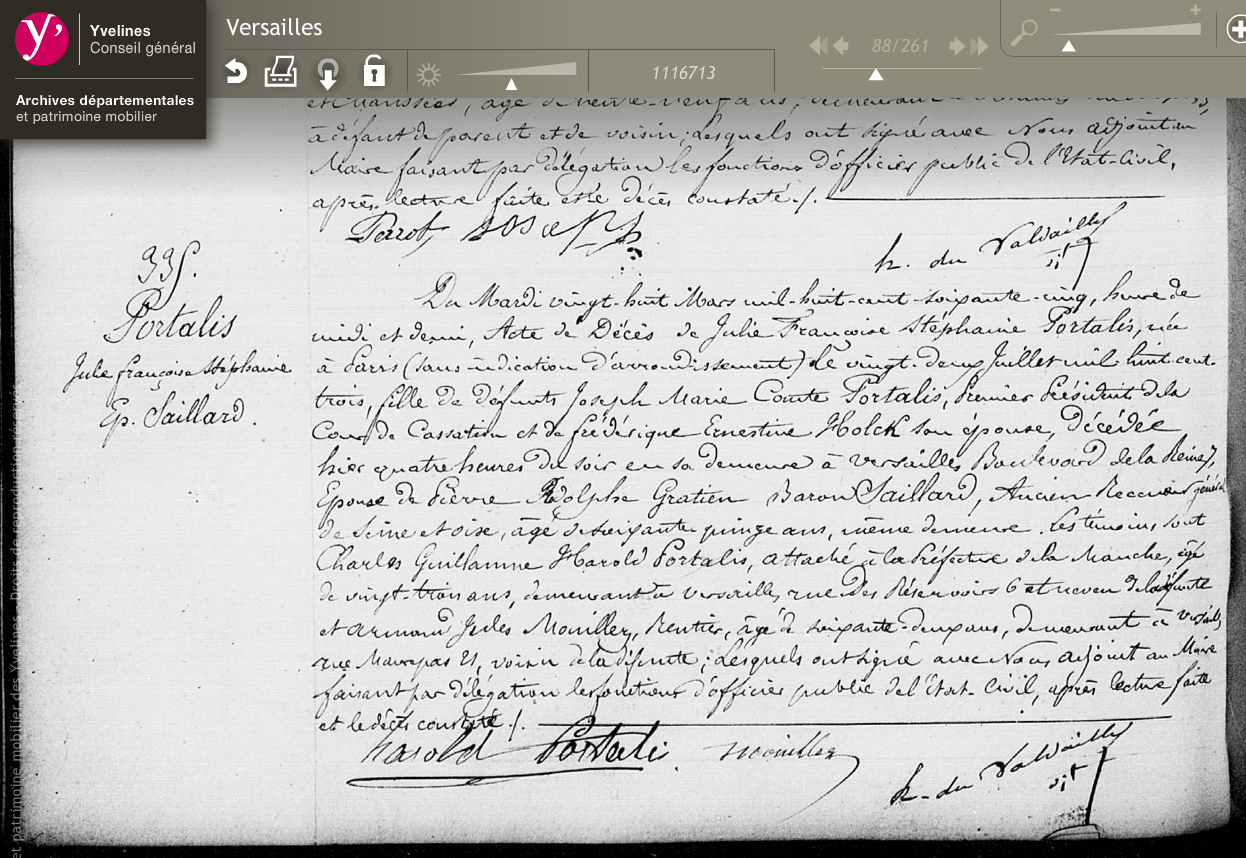 Yvelines
Conseil général
Archives départementales
et patrimoine mobilier
Versailles
88/261
1116713
à défaut de parent et de voisin ; lesquels ont signé avec Nous adjoint au
Maire faisant par délégation les fonctions d'officier public de l'Etat-Civil,
après lecture faite et le décès constaté ./.
Perrot
h. du Valdailly
335.
Portalis
Julie françoise stéphanie
Ep. Saillard.
Du Mardi vingt-huit Mars mil-huit-cent-soixante-cinq, heure de
midi et demi, Acte de Décès de Julie Françoise Stéphanie Portalis, née
à Paris (sans indication d'arrondissement) le vingt-deux Juillet mil huit-cent-
trois, fille de défunts Joseph Marie Comte Portalis, Premier Président de la
Cour de Cassation et de frédérique Ernestine Holck son épouse, Décédée
hier quatre heures du soir en sa demeure à Versailles Boulevard de la Reine 7,
Epouse de Pierre Adolphe Gratien Baron Saillard, Ancien Receveur général
de Seine et oise, âgé de soixante quinze ans, même demeure. Les témoins sont
Charles Guillaume Harold Portalis, attaché à la Préfecture de la Manche, âgé
de vingt-trois ans, demeurant à Versailles, rue des Réservoirs 6 et neveu de la défunte
et armand Jules Mouillez, Rentier, âgé de soixante-deux ans, demeurant à Versailles
rue Maurepas 21, voisin de la défunte ; Lesquels ont signé avec Nous adjoint au Maire
faisant par délégation les fonctions d'officier public de l'Etat-Civil, après lecture faite
et le décès constaté ./.
harold Portalis
Mouillez
h. du Valdailly